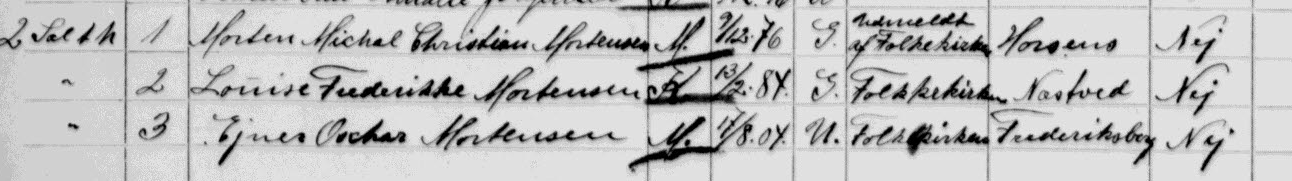 2 Sal th 1 Morten Michal Christian Mortensen M. 9/12.76 G. Udmeldt af Folkekirken Horsens Nej
" 2 Louise Frederikke Mortensen K 13/2.84. G. Folkekirken Næstved Nej
" 3 Ejner Oschar Mortensen M. 17/8.04. U. Folkekirken Frederiksberg Nej